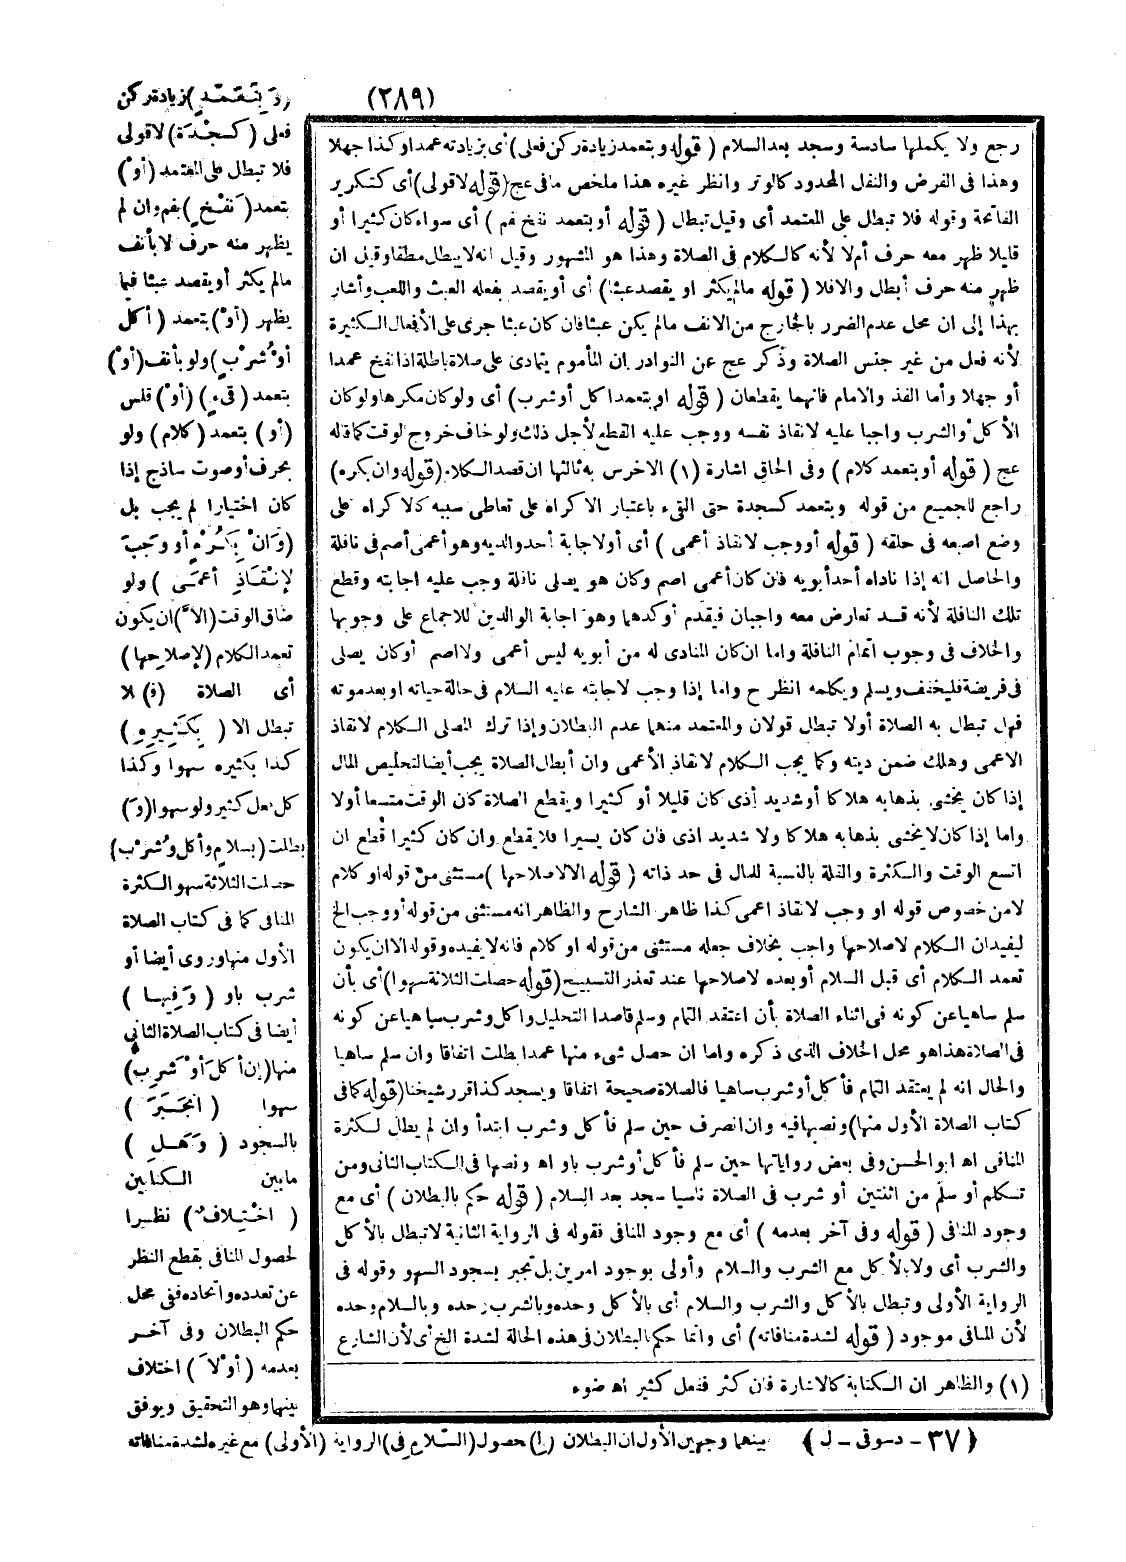 (٢٨٩)
رجع ولا يكملها سادسة وسجد بعد السلام ( قوله وبتعمد زيادة ركن فعلى) أى بزيادته عمدا وكذا جهلا
وهذا فى الفرض والنفل المحدود كالوتر وانظر غيره هذا ملخص ما فى عج (قوله لاقولى) أى كتكرير
الفاتحة وقوله فلا تبطل على المعتمد أى وقيل تبطل ( قوله أو بتعمد نفخ بفم ) أى سواء كان كثيرا أو
قليلا ظهر معه حرف أم لا لأنه كالكلام فى الصلاة وهذا هو المشهور وقيل انه لا يبطل مطلقا وقيل ان
ظهر منه حرف أبطل والافلا ( قوله مالم يكثر او يقصد عبثا) أى أو يقصد بفعله العبث واللعب وأشار
بهذا إلى ان محل عدم الضرر بالخارج من الانف مالم يكن عبثا فان كان عبثا جرى على الأفعال الكثيرة
لأنه فعل من غير جنس الصلاة وذكر عج عن النوادر ان المأموم يتمادى على صلاة باطلة اذا نفخ عمدا
أو جهلا وأما الفذ والامام فانهما يقطعان ( قوله او بتعمد اكل أو شرب) أى ولو كان مكرها ولو كان
الأكل والشرب واجبا عليه لانقاذ نفسه ووجب عليه القطع لأجل ذلك ولو خاف خروج الوقت كما قاله
عج ( قوله أو بتعمد كلام ) وفى الحاق اشارة (١) الاخرس به ثالثها ان قصد الكلام (قوله وان بكره)
راجع للجميع من قوله وبتعمد كسجدة حتى القىء باعتبار الاكراه على تعاطى سببه كالاكراه على
وضع اصبعه فى حلقه ( قوله أو وجب لانقاذ أعمى ) أى أو لاجابة أحد والديه وهو أعمى أصم فى نافلة
والحاصل انه إذا ناداه أحد أبويه فان كان أعمى اصم وكان هو يصلى نافلة وجب عليه اجابته وقطع
تلك النافلة لأنه قد تعارض معه واجبان فيقدم أوكدهما وهو اجابة الوالدين للاجماع على وجوبها
والخلاف فى وجوب اتمام النافلة واما ان كان المنادى له من أبويه ليس أعمى ولا اصم أو كان يصلى
فى فريضة فليخفف ويسلم ويكلمه انظر ح واما إذا وجب لاجابته عليه السلام فى حالة حياته او بعد موته
فهل تبطل به الصلاة أولا تبطل قولان والمعتمد منهما عدم البطلان وإذا ترك المصلى الكلام لانقاذ
الاعمى وهلك ضمن ديته وكما يجب الكلام لانقاذ الأعمى وان أبطل الصلاة يجب أيضا لتخليص المال
إذا كان يخشى بذهابه هلاكا أو شديد أذى كان قليلا أو كثيرا ويقطع الصلاة كان الوقت متسعا أولا
واما إذا كان لا يخشى بذهابه هلاكا ولا شديد اذى فان كان يسيرا فلا يقطع وان كان كثيرا قطع ان
اتسع الوقت والكثرة والقلة بالنسبة للمال فى حد ذاته ( قوله الا لاصلاحها ) مستثنى من قوله او كلام
لامن خصوص قوله او وجب لانقاذ اعمى كذا ظاهر الشارح والظاهر انه مستثنى من قوله أو وجب الخ
ليفيد ان الكلام لاصلاحها واجب بخلاف جعله مستثنى من قوله او كلام فانه لا يفيده وقوله الا ان يكون
تعمد الكلام أى قبل السلام أو بعده لاصلاحها عند تعذر التسبيح (قوله حصلت الثلاثة سهوا) أى بأن
سلم ساهيا عن كونه فى اثناء الصلاة بأن اعتقد التمام وسلم قاصدا التحليل وأكل وشرب ساهيا عن كونه
فى الصلاة هذا هو محل الخلاف الذى ذكره واما ان حصل شىء منها عمدا بطلت اتفاقا وان سلم ساهيا
والحال انه لم يعتقد التمام فأكل أو شرب ساهيا فالصلاة صحيحة اتفاقا ويسجد كذا قرر شيخنا (قوله كما فى
كتاب الصلاة الأول منها) ونصها فيه وان انصرف حين سلم فأكل وشرب ابتدأ وان لم يطل لكثرة
المنافى اه ابو الحسن وفى بعض رواياتها حين سلم فأكل أو شرب باو اه ونصها فى الكتاب الثانى ومن
تكلم أو سلم من اثنتين أو شرب فى الصلاة ناسيا سجد بعد السلام ( قوله حكم بالبطلان ) أى مع
وجود المنافى ( قوله وفى آخر بعدمه ) أى مع وجود المنافى فقوله فى الرواية الثانية لاتبطل بالأكل
والشرب أى ولا بالأكل مع الشرب والسلام وأولى بوجود امرين بل تجبر بسجود السهو وقوله فى
الرواية الأولى وتبطل بالأكل والشرب والسلام أى بالأكل وحده وبالشرب وحده وبالسلام وحده
لأن المنافى موجود ( قوله لشدة منافاته) أى وانما حكم بالبطلان فى هذه الحالة لشدة الخ أى لأن الشارع
(١) والظاهر ان الكتابة كالاشارة فان كثر ففعل كثير اه ضوء
(وَبِتَعَمُّدِ) زيادة ركن
فعلى (كَسَجْدَة) لاقولى
فلا تبطل على المعتمد (أوْ)
بتعمد (نَفْخٍ) بفم وان لم
يظهر منه حرف لا بأنف
مالم يكثر أو يقصد عبثا فيما
يظهر (أوْ) بتعمد ( أكل
أوْ شُرْبٍ) ولو بأنف (أوْ)
بتعمد (قىءٍ) (أوْ) قلس
(أو) بتعمد (كلام) ولو
بحرف أو صوت ساذج إذا
كان اختيارا لم يجب بل
(وَانْ بِكُرْهٍ أو وَجَبَ
لإِنْقَاذِ أعمَى ) ولو
ضاق الوقت (الاَّ) ان يكون
تعمد الكلام (لإصلاحِها)
أى الصلاة (فـ) لا
تبطل الا ( بِكَثِيرِهِ )
كذا بكثيره سهوا وكذا
كل فعل كثير ولو سهوا (وَ)
بطلت (بسلامٍ وأكل وَشُرْب)
حصلت الثلاثة سهوا لكثرة
المنافى كما فى كتاب الصلاة
الأول منها وروى أيضا أو
شرب باو ( وَفِيها )
أيضا فى كتاب الصلاة الثانى
منها (إن أكلَ أوْ شَرِبَ)
سهوا ( انْجَبَرَ )
بالسجود ( وَهَلْ )
مابين الكتابين
( اخْتِلافٌ ) نظرا
لحصول المنافى بقطع النظر
عن تعدده واتحاده ففى محل
حكم البطلان وفى آخر
بعدمه ( أوْلاَ ) اختلاف
بينهما وهو التحقيق ويوفق
بينهما وجهين الأول ان البطلان (لـ) حصول (السَّلامِ فى) الرواية (الأولى) مع غيره لشدة منافاته
( ٣٧ - دسوقى - ل )